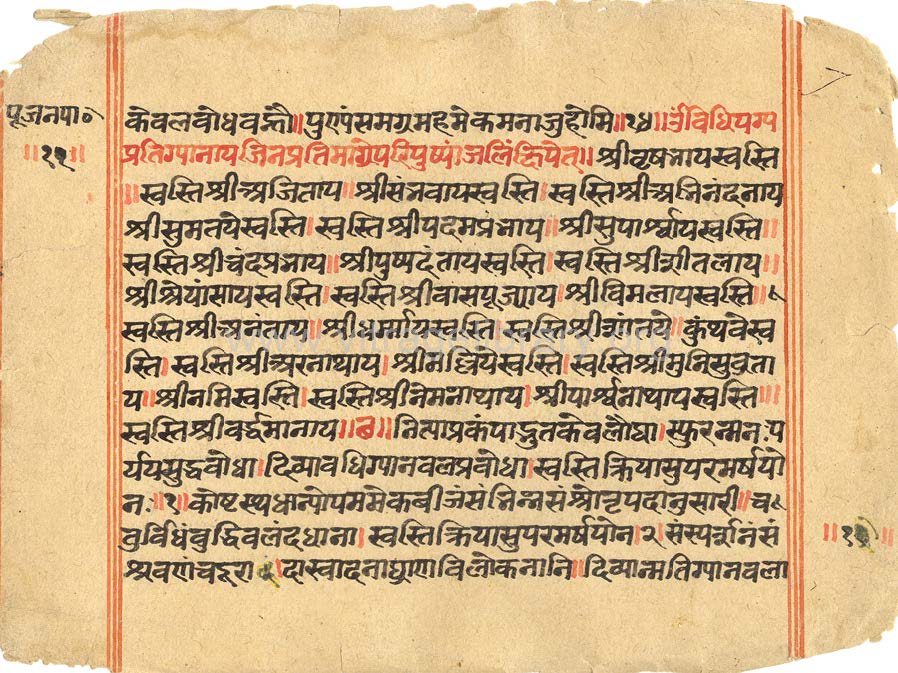 पूजनपा०
॥१२॥
केवलबोधवन्हौ॥पुण्यंसमग्रमहमेकमनाजुहोमि॥१४॥ॐविधियग्य
प्रतिग्पानायजिनप्रतिमाग्रेपरिपुष्पांजलिंक्षिपेत्॥श्रीवृषभायस्वस्ति
॥स्वस्तिश्रीअजिताय॥श्रीसंभवायस्वस्ति।स्वस्तिश्रीअभिनंदनाय
श्रीसुमतयेस्वस्ति।स्वस्तिश्रीपदमप्रभाय॥श्रीसुपार्श्वायस्वस्ति॥
स्वस्तिश्रीचंदप्रभाय॥श्रीपुष्पदंतायस्वस्ति।स्वस्तिश्रीशीतलाय॥
श्रीश्रेयांसायस्वस्ति।स्वस्तिश्रीवासपूज्याय।श्रीविमलायस्वस्ति॥
स्वस्तिश्रीअनंताय॥श्रीधर्मायस्वस्ति।स्वस्तिश्रीशांतये।कुंथवेस्व
स्ति।स्वस्तिश्रीअरनाथाय।श्रीमल्लियेस्वस्ति।स्वस्तिश्रीमुनिसुव्रता
य॥श्रीनमिस्वस्ति।स्वस्तिश्रीनेमनाथाय।श्रीपार्श्वनाथायस्वस्ति॥
स्वस्तिश्रीवर्द्धमानाय॥छ॥नित्याप्रकंपाद्भुतकेवलौघा।स्फुरन्मनःप
र्ययसुद्धबोधा।दिव्यावधिग्पानबलप्रबोधा।स्वस्तिक्रियासुपरमर्षयो
नः॥१।कोष्टस्थधान्योपममेकबीजंसंभिन्नसंश्रोतृपदानुसारी॥च
तुर्विधंबुद्धिबलंदधाना।स्वस्तिक्रियासुपरमर्षयोन।२।संस्पर्शनंसं
श्रवणंचदूरा।दास्वादनाघ्राणविलोकनानि॥दिव्यान्मतिग्पानबला